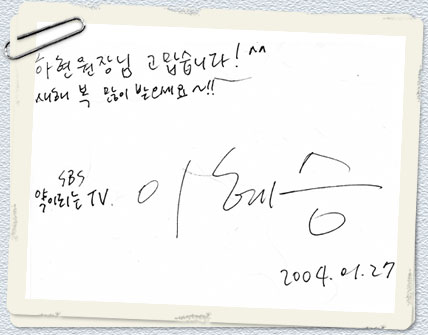 하현원장님 고맙습니다! ^^
새해 복 많이 받으세요~!!
SBS
약이되는 TV.
이혜승
2004.01.27